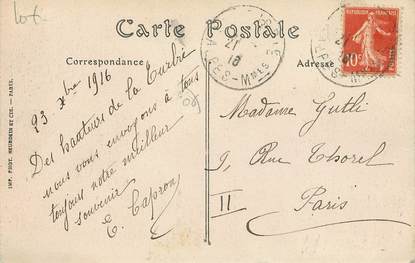 Carte Postale
Correspondance
Adresse
23 Xbre 1916
Des hauteurs de la Turbie
nous vous envoyons à tous
toujours notre meilleur
souvenir
E. Capron
Madame Gutli
9, Rue Thorel
II Paris
RÉPUBLIQUE FRANÇAISE
10c
POSTES
21
16
ALPES-Mmes
IMP. PHOT. NEURDEIN ET CIE. — PARIS.
lot